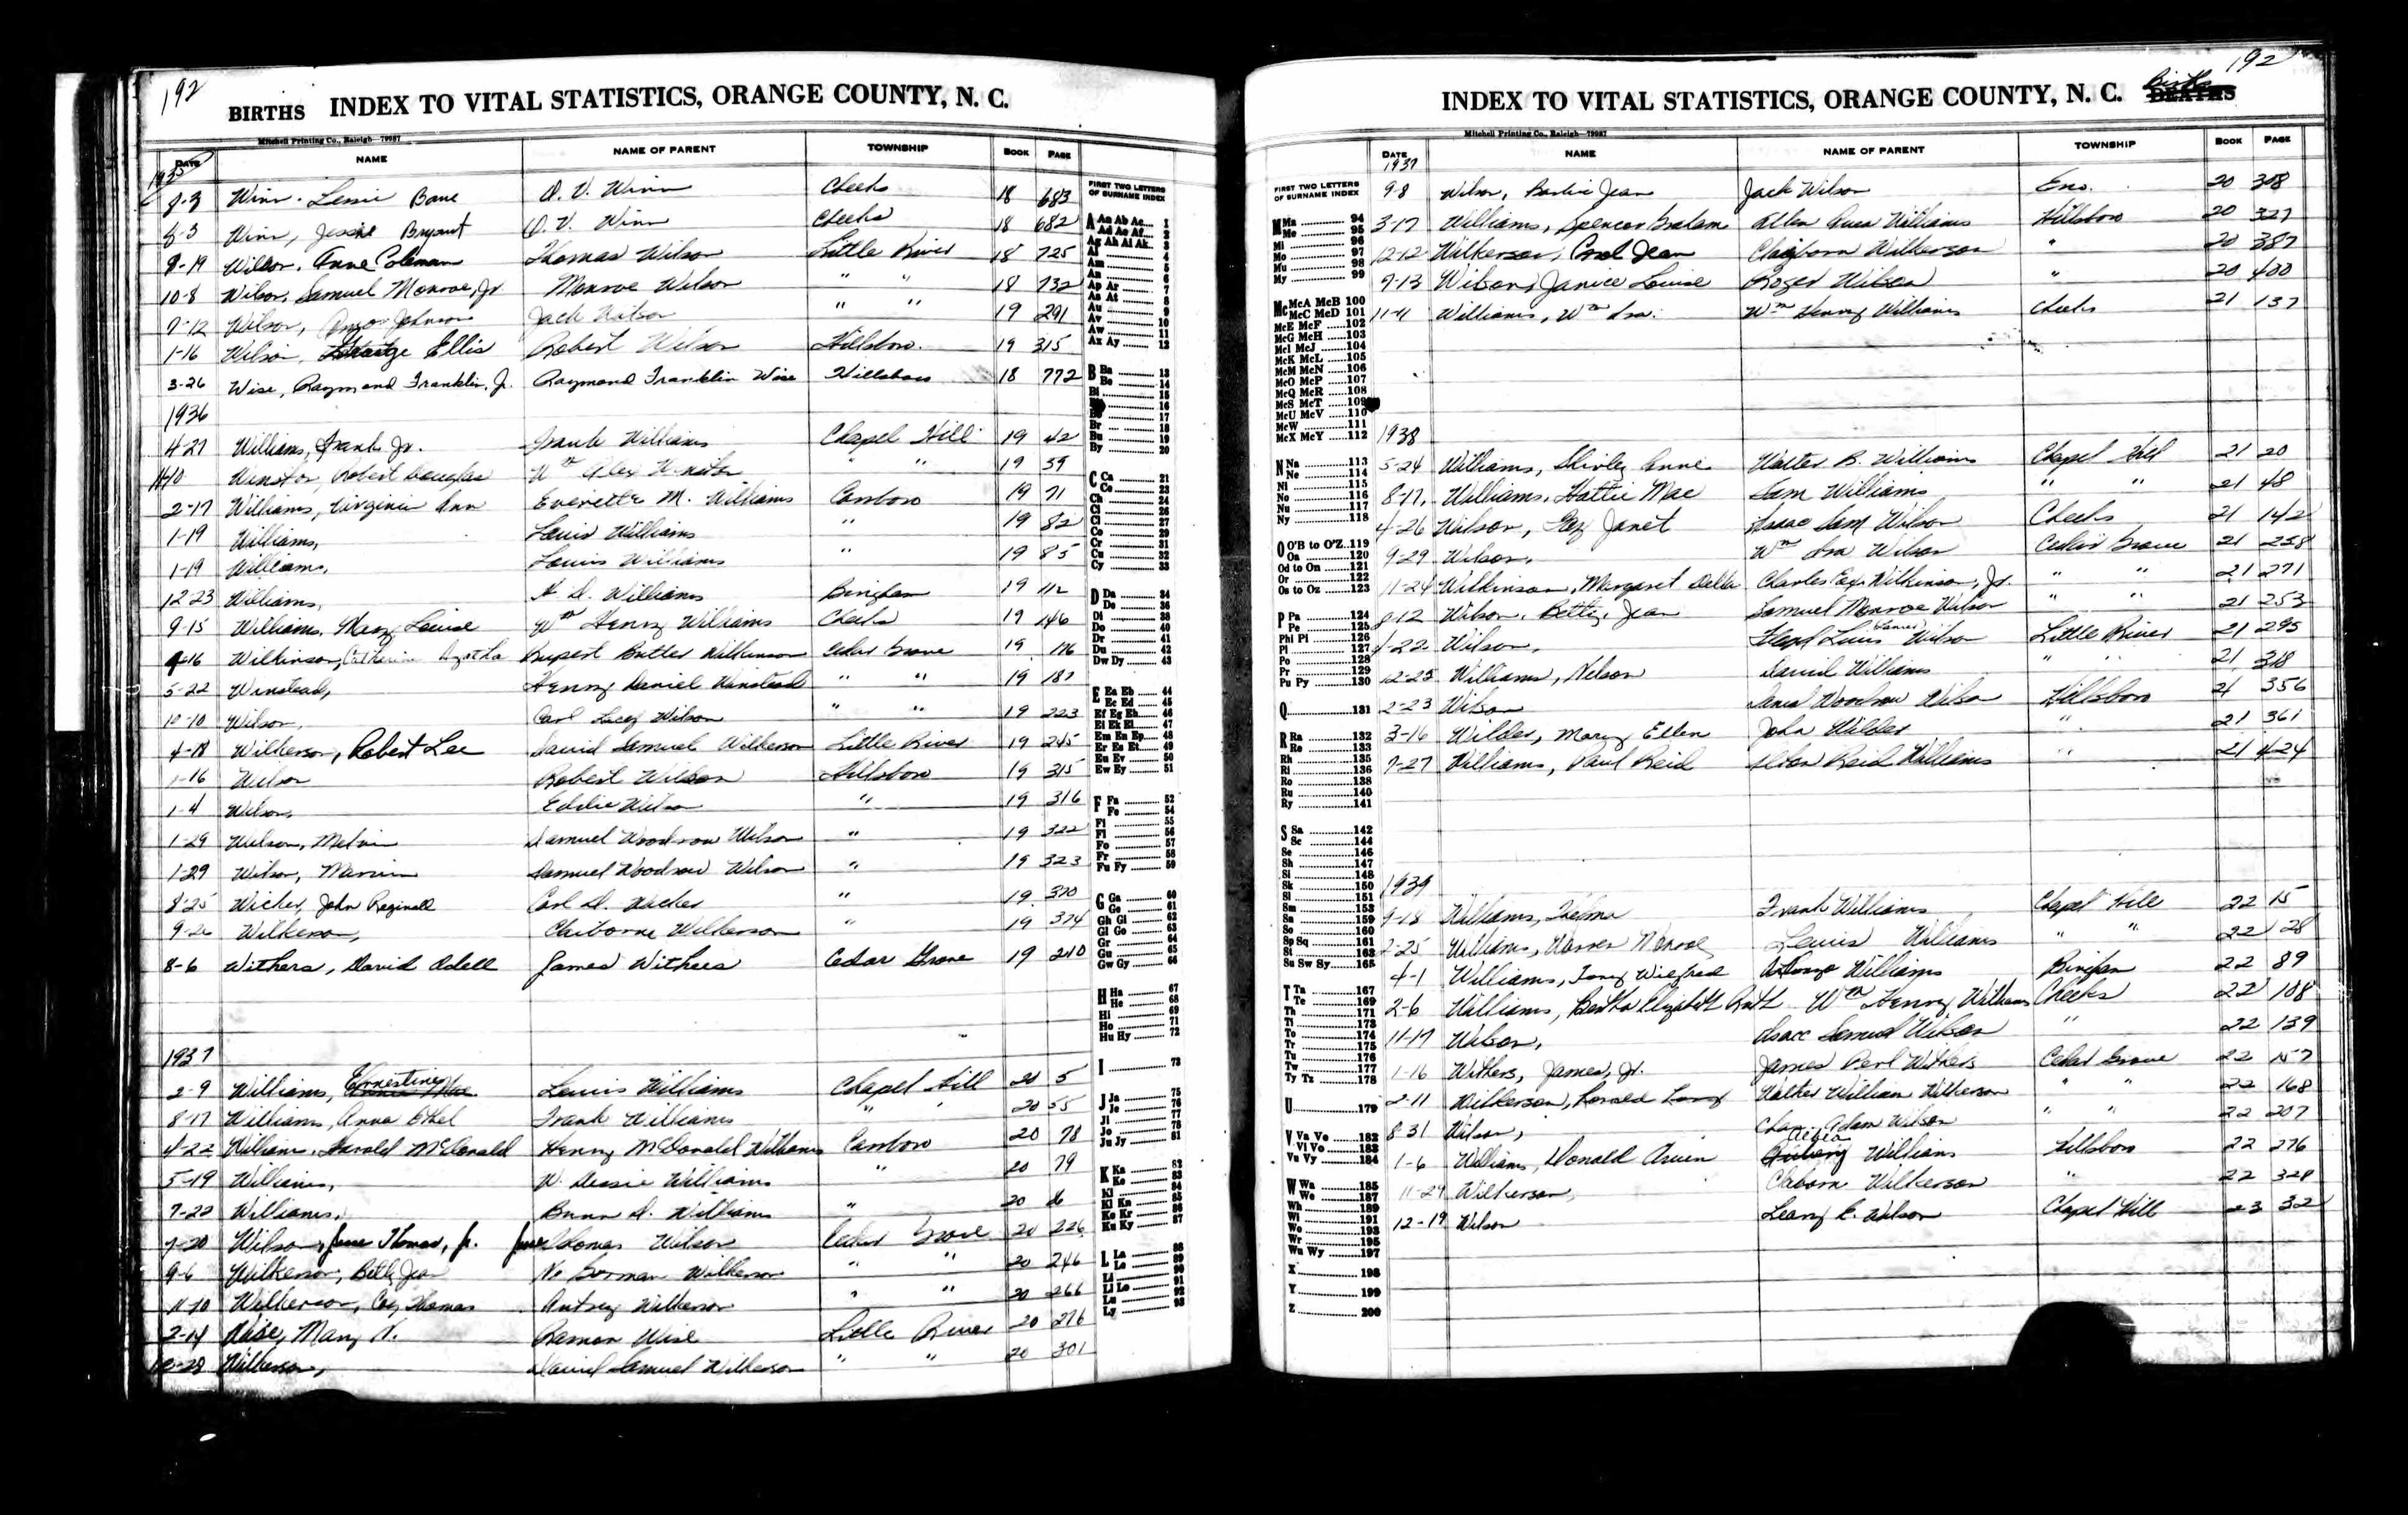 192
BIRTHS INDEX TO VITAL STATISTICS, ORANGE COUNTY, N. C.
Mitchell Printing Co., Raleigh—79987
DATE NAME NAME OF PARENT TOWNSHIP BOOK PAGE
1935
8-3 Winn, Bane O. V. Winn Cheeks 18 683
8-3 Winn, Jessie Bryant O. V. Winn Cheeks 18 682
8-19 Wilson, Anne Coleman Thomas Wilson Little River 18 725
10-8 Wilson, Samuel Monroe, Jr Monroe Wilson " " 18 732
7-12 Wilson, Johnson Jack Wilson " " 19 291
1-16 Wilson, Ellis Robert Wilson Hillsboro 19 315
3-26 Wise, Raymond Franklin, Jr. Raymond Franklin Wise Hillsboro 18 772
1936
4-27 Williams, Frank Jr. Frank Williams Chapel Hill 19 42
Winston, Robert Douglas Wm Alex Winston " " 19 39
2-17 Williams, Virginia Ann Everette M. Williams Carrboro 19 71
1-19 Williams, Louis Williams " 19 82
1-19 Williams, Louis Williams " 19 85
12-23 Williams, D. Williams Bingham 19 112
9-15 Williams, Mary Louise Wm Henry Williams Cheeks 19 146
Wilkinson, Catherine Agatha Rupert Butler Wilkinson Cedar Grove 19 176
5-22 Winstead, Henry Daniel Winstead " " 19 182
10-10 Wilson, Carl Lacy Wilson " " 19 223
4-18 Wilkerson, Robert Lee David Samuel Wilkerson Little River 19 245
1-16 Wilson Robert Wilson Hillsboro 19 315
1-4 Wilson, Eddie Wilson " 19 316
1-29 Wilson, Melvin Samuel Woodrow Wilson " 19 322
1-29 Wilson, Marvin Samuel Woodrow Wilson " 19 323
8-25 Wicker, John Reginald Carl D. Wicker " 19 370
9-26 Wilkerson, Claiborne Wilkerson " 19 374
8-6 Withers, David Odell James Withers Cedar Grove 19 210
1937
2-9 Williams, Ernestine Lewis Williams Chapel Hill 20 5
8-17 Williams, Anna Ethel Frank Williams " " 20 55
4-22 Williams, Harold McDonald Henry McDonald Williams Carrboro 20 78
5-19 Williams, W. Dessie Williams " 20 79
7-22 Williams, Bunn D. Williams " 20
7-20 Wilson, Thomas, Jr. Thomas Wilson Cedar Grove 20 226
9-6 Wilkerson, Betty Jean Norman Wilkerson " " 20 246
11-10 Wilkerson, Coy Thomas Autrey Wilkerson " " 20 266
2-14 Wise, Mary N. Ramon Wise Little River 20 276
Wilkerson, David Samuel Wilkerson " " 20 301
FIRST TWO LETTERS
OF SURNAME INDEX
A Aa Ab Ac 1
Ad Ae Af 2
Ag Ah Ai Ak 3
Al 4
Am 5
An 6
Ap Ar 7
As At 8
Au 9
Av 10
Aw 11
Ax Ay 12
B Ba 13
Be 14
Bi 15
16
Bo 17
Br 18
Bu 19
By 20
C Ca 21
Ce 23
Ch 24
Ci 26
Cl 27
Co 29
Cr 31
Cu 32
Cy 33
D Da 34
De 36
Di 38
Do 40
Dr 41
Du 42
Dw Dy 43
E Ea Eb 44
Ec Ed 45
Ef Eg Eh 46
Ei Ek El 47
Em En Ep 48
Er Es Et 49
Eu Ev 50
Ew Ey 51
F Fa 52
Fe 54
Fi 55
Fl 56
Fo 57
Fr 58
Fu Fy 59
G Ga 60
Ge 61
Gh Gi 62
Gl Go 63
Gr 64
Gu 65
Gw Gy 66
H Ha 67
He 68
Hi 69
Ho 71
Hu Hy 72
I 73
J Ja 75
Je 76
Ji 77
Jo 78
Ju Jy 81
K Ka 82
Ke 83
Ki 84
Kl Kn 85
Ko Kr 86
Ku Ky 87
L La 88
Le 89
Li 90
Ll Lo 91
Lu 92
Ly 93
192
INDEX TO VITAL STATISTICS, ORANGE COUNTY, N. C. Births DEATHS
Mitchell Printing Co., Raleigh—79987
FIRST TWO LETTERS
OF SURNAME INDEX
M Ma 94
Me 95
Mi 96
Mo 97
Mu 98
My 99
Mc McA McB 100
McC McD 101
McE McF 102
McG McH 103
McI McJ 104
McK McL 105
McM McN 106
McO McP 107
McQ McR 108
McS McT 109
McU McV 110
McW 111
McX McY 112
N Na 113
Ne 114
Ni 115
No 116
Nu 117
Ny 118
O O'B to O'Z 119
Oa 120
Od to On 121
Or 122
Os to Oz 123
P Pa 124
Pe 125
Phi Pi 126
Pl 127
Po 128
Pr 129
Pu Py 130
Q 131
R Ra 132
Re 133
Rh 135
Ri 136
Ro 138
Ru 140
Ry 141
S Sa 142
Sc 144
Se 146
Sh 147
Si 148
Sk 150
Sl 151
Sm 153
Sn 159
So 160
Sp Sq 161
St 163
Su Sw Sy 165
T Ta 167
Te 169
Th 171
Ti 173
To 174
Tr 175
Tu 176
Tw 177
Ty Tz 178
U 179
V Va Ve 182
Vi Vo 183
Vu Vy 184
W Wa 185
We 187
Wh 189
Wi 191
Wo 193
Wr 195
Wu Wy 197
X 198
Y 199
Z 200
DATE NAME NAME OF PARENT TOWNSHIP BOOK PAGE
1937
9-8 Wilson, Jean Jack Wilson Eno. 20 308
3-17 Williams, Spencer Graham Allen Williams Hillsboro 20 327
12-12 Wilkerson, Carol Jean Claiborn Wilkerson " 20 387
7-13 Wilson, Janice Louise Roger Wilson " 20 400
11-11 Williams, Wm Ira. Wm Henry Williams Cheeks 21 137
1938
5-24 Williams, Shirley Anne Walter B. Williams Chapel Hill 21 20
8-17, Williams, Hattie Mae Sam Williams " " 21 48
4-26 Wilson, Janet Isaac Sam Wilson Cheeks 21 142
9-29 Wilson, Wm Ira Wilson Cedar Grove 21 238
11-24 Wilkinson, Margaret Della Charles Wilkinson, Jr. " " 21 271
Wilson, Betty Jean Samuel Monroe Wilson " " 21 253
Wilson, Wilson Little River 21 295
12-25 Williams, Nelson David Williams " " 21 318
2-23 Wilson Woodrow Wilson Hillsboro 21 356
3-16 Wilder, Mary Ellen John Wilder " 21 361
7-27 Williams, Paul Reid Reid Williams " 21 424
1939
9-18 Williams, Thelma Frank Williams Chapel Hill 22 15
2-25 Williams, Warren Monroe Lewis Williams " " 22 28
4-1 Williams, Wilfred Alonzo Williams Bingham 22 89
2-6 Williams, Bertha Elizabeth Ruth Wm Henry Williams Cheeks 22 108
11-17 Wilson, Isaac Samuel Wilson " 22 139
1-16 Withers, James, Jr. James Withers Cedar Grove 22 157
2-11 Wilkerson, Walter William Wilkerson " " 22 168
8-31 Wilson, Adam Wilson " " 22 207
1-6 Williams, Donald Williams Hillsboro 22 276
11-29 Wilkerson, Claborn Wilkerson " 22 328
12-19 Wilson Wilson Chapel Hill 23 32